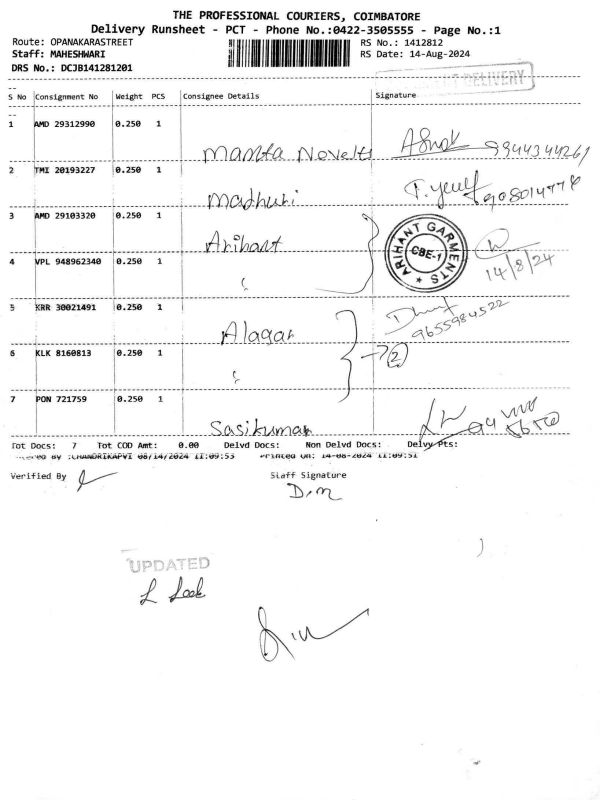 THE PROFESSIONAL COURIERS, COIMBATORE
Delivery Runsheet - PCT - Phone No.:0422-3505555 - Page No.:1
Route: OPANAKARASTREET RS No.: 1412812
Staff: MAHESHWARI RS Date: 14-Aug-2024
DRS No.: DCJB141281201
DELIVERY
S No Consignment No Weight PCS Consignee Details Signature
1 AMD 29312990 0.250 1
Mamta Novelts 9944344261
2 TMI 20193227 0.250 1
Madhuri
3 AMD 29103320 0.250 1
Arihant
ARIHANT GARMENTS
CBE-1
14/8/24
4 VPL 948962340 0.250 1
"
5 KRR 30021491 0.250 1
Alagar 9655984522
6 KLK 8160813 0.250 1
" → 2
7 PON 721759 0.250 1
Sasikumar
Tot Docs: 7 Tot COD Amt: 0.00 Delvd Docs: Non Delvd Docs: Delvy Pts:
:CHANDRIKAPVI 08/14/2024 11:09:53 Printed On: 14-08-2024 11:09:51
Verified By Staff Signature
UPDATED